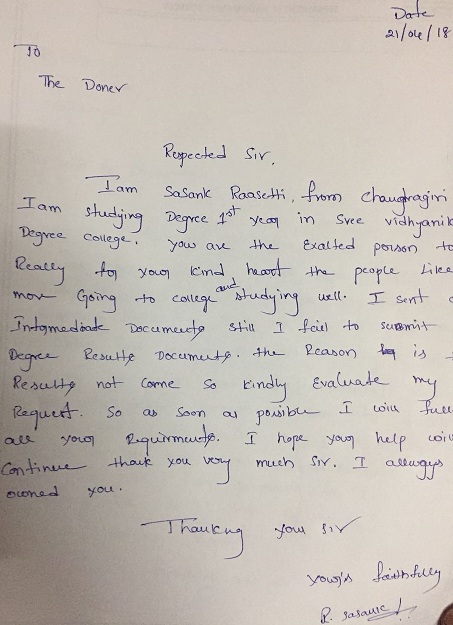 Date
21/04/18
To
The Doner
Respected Sir,
I am Sasank Raasetti, from Chandragiri
I am studying Degree 1st year in Sree vidhyanik
Degree college. you are the Exalted person to
Really for your kind heart the people like
Going to college and studying well. I sent
Intermediate Documents still I fail to summit
Degree Results Documents. the Reason is
Results not come so kindly Evaluate my
Request. So as soon as possible I will full
all your Requirments. I hope your help will
Continue thank you very much Sir. I allways
owned you.
Thanking you sir
your's faithfully
R. Sasank